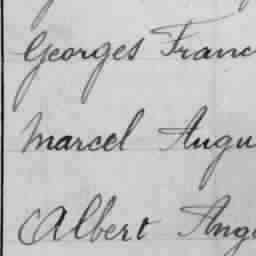 Georges Franc
Marcel Augu
Albert Ang